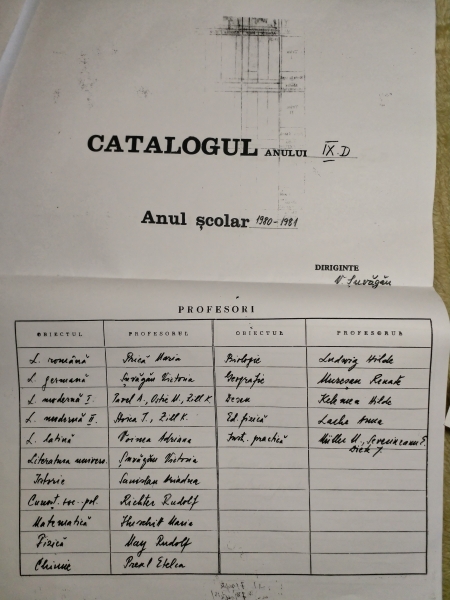 CATALOGUL ANULUI IX D
Anul școlar 1980-1981
DIRIGINTE
V. Șuvăgău
PROFESORI
OBIECTUL PROFESORUL OBIECTUL PROFESORUL
L. română Maria Biologie Ludwig Hilde
L. germană Șuvăgău Victoria Geografie Mureșan Renate
L. modernă I. Pavel A., Zill K. Desen Kelemen Hilde
L. modernă II. Stoica T., Zill K. Ed. fizică Lacha Anna
L. latină Voinea Adriana Inst. practică Müller M., Severineanu E.
Dick J.
Literatura univers. Șuvăgău Victoria
Istorie Ariadna
Cunoșt. soc.-pol. Richter Rudolf
Matematică Maria
Fizică May Rudolf
Chimie Preal Etelca